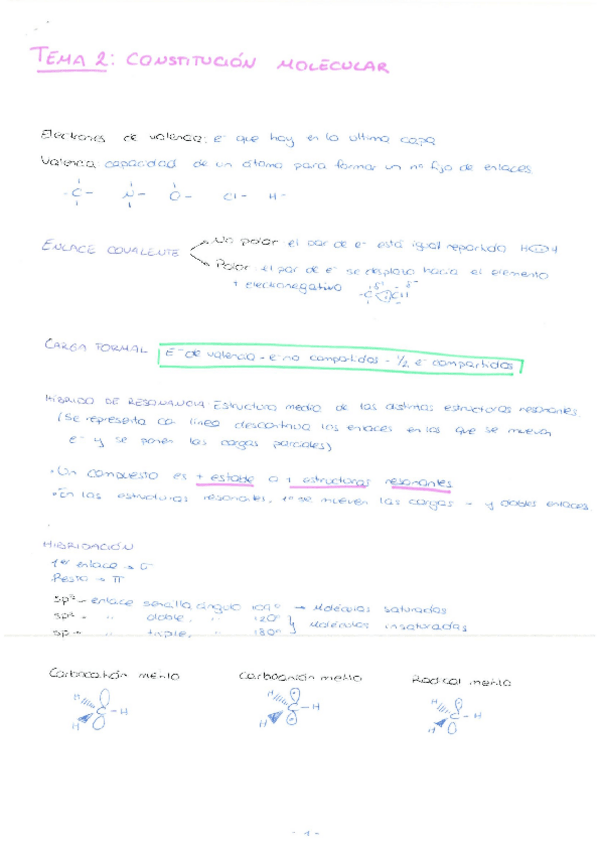 TEMA 2: CONSTITUCIÓN MOLECULAR
Electrones de valencia: e⁻ que hay en la ultima capa
Valencia: capacidad de un átomo para formar un nº fijo de enlaces.
-C- -N- O- Cl- H-
ENLACE COVALENTE
No polar: el par de e⁻ está igual repartido
Polar: el par de e⁻ se desplaza hacia el elemento
+ electronegativo
CARGA FORMAL E⁻ de valencia - e⁻ no compartidos - 1/2 e⁻ compartidos
HÍBRIDO DE RESONANCIA: Estructura media de las distintas estructuras resonantes.
(Se representa con línea discontinua los enlaces en los que se mueven
e⁻ y se ponen las cargas parciales)
• Un compuesto es + estable a + estructuras resonantes
• En las estructuras resonantes, 1º se mueven las cargas - y dobles enlaces
HIBRIDACIÓN
1er enlace → σ
Resto → π
sp³ - enlace sencillo, ángulo 109º → Moléculas saturadas
sp² - " doble, " 120º
sp - " triple, " 180º } Moléculas insaturadas
Carbocatión metilo Carboanión metilo Radical metilo
H H C - H H H C - H H H C - H
- 1 -